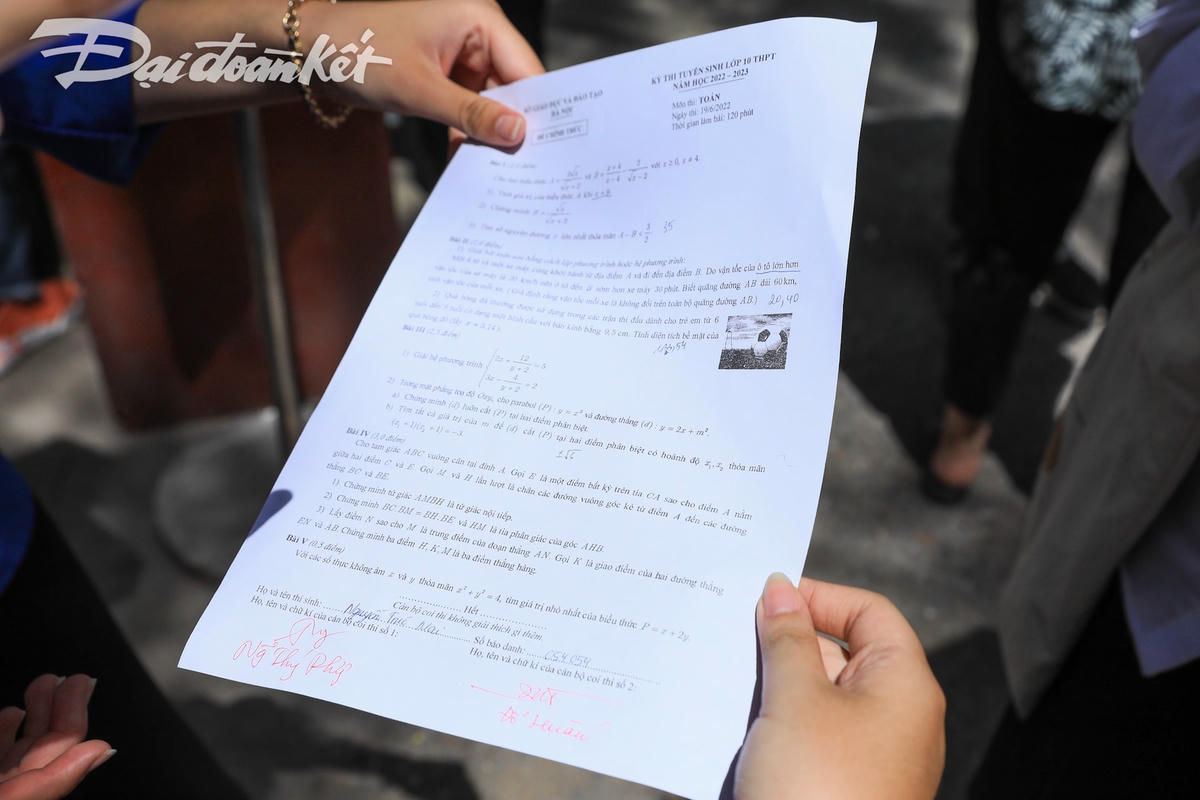 Đại đoàn kết
SỞ GIÁO DỤC VÀ ĐÀO TẠO
HÀ NỘI
ĐỀ CHÍNH THỨC
KỲ THI TUYỂN SINH LỚP 10 THPT
NĂM HỌC 2022 – 2023
Môn thi: TOÁN
Ngày thi: 19/6/2022
Thời gian làm bài: 120 phút
Bài I (2,0 điểm)
Cho hai biểu thức A = 3√x/(√x + 2) và B = (x + 4)/(x − 4) − 2/(√x − 2) với x ≥ 0, x ≠ 4.
1) Tính giá trị của biểu thức A khi x = 9.
2) Chứng minh B = √x/(√x + 2)
3) Tìm số nguyên dương x lớn nhất thỏa mãn A − B < 3/2 35
Bài II (2,0 điểm)
1) Giải bài toán sau bằng cách lập phương trình hoặc hệ phương trình:
Một ô tô và một xe máy cùng khởi hành từ địa điểm A và đi đến địa điểm B. Do vận tốc của ô tô lớn hơn
vận tốc của xe máy là 20 km/h nên ô tô đến B sớm hơn xe máy 30 phút. Biết quãng đường AB dài 60 km,
tính vận tốc của mỗi xe. (Giả định rằng vận tốc mỗi xe là không đổi trên toàn bộ quãng đường AB.) 20, 40
2) Quả bóng đá thường được sử dụng trong các trận thi đấu dành cho trẻ em từ 6
tuổi đến 8 tuổi có dạng một hình cầu với bán kính bằng 9,5 cm. Tính diện tích bề mặt của
quả bóng đó (lấy π ≈ 3,14).
Bài III (2,5 điểm)
1) Giải hệ phương trình { 2x + 12/(y + 2) = 5
3x − 4/(y + 2) = 2
2) Trong mặt phẳng toạ độ Oxy, cho parabol (P) : y = x² và đường thẳng (d) : y = 2x + m².
a) Chứng minh (d) luôn cắt (P) tại hai điểm phân biệt.
b) Tìm tất cả giá trị của m để (d) cắt (P) tại hai điểm phân biệt có hoành độ x₁, x₂ thỏa mãn
(x₁ + 1)(x₂ + 1) = −3.
Bài IV (3,0 điểm)
Cho tam giác ABC vuông cân tại đỉnh A. Gọi E là một điểm bất kỳ trên tia CA sao cho điểm A nằm
giữa hai điểm C và E. Gọi M và H lần lượt là chân các đường vuông góc kẻ từ điểm A đến các đường
thẳng BC và BE.
1) Chứng minh tứ giác AMBH là tứ giác nội tiếp.
2) Chứng minh BC.BM = BH.BE và HM là tia phân giác của góc AHB.
3) Lấy điểm N sao cho M là trung điểm của đoạn thẳng AN. Gọi K là giao điểm của hai đường thẳng
EN và AB. Chứng minh ba điểm H, K, M là ba điểm thẳng hàng.
Bài V (0,5 điểm)
Với các số thực không âm x và y thỏa mãn x² + y² = 4, tìm giá trị nhỏ nhất của biểu thức P = x + 2y.
Hết
Cán bộ coi thi không giải thích gì thêm.
Họ và tên thí sinh: Nguyễn Mai Số báo danh: 054054
Họ, tên và chữ kí của cán bộ coi thi số 1: Họ, tên và chữ kí của cán bộ coi thi số 2: